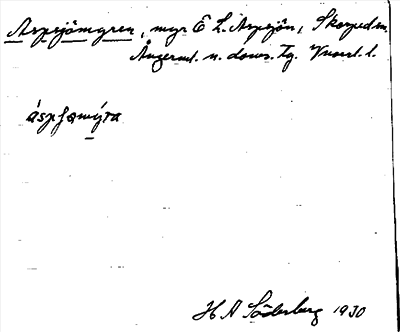 Aspsjömyren, myr Ö L. Aspsjön, Skorped sn.
Ångerml. n. doms. Tg.
áspsamýra
H A Söderberg 1930